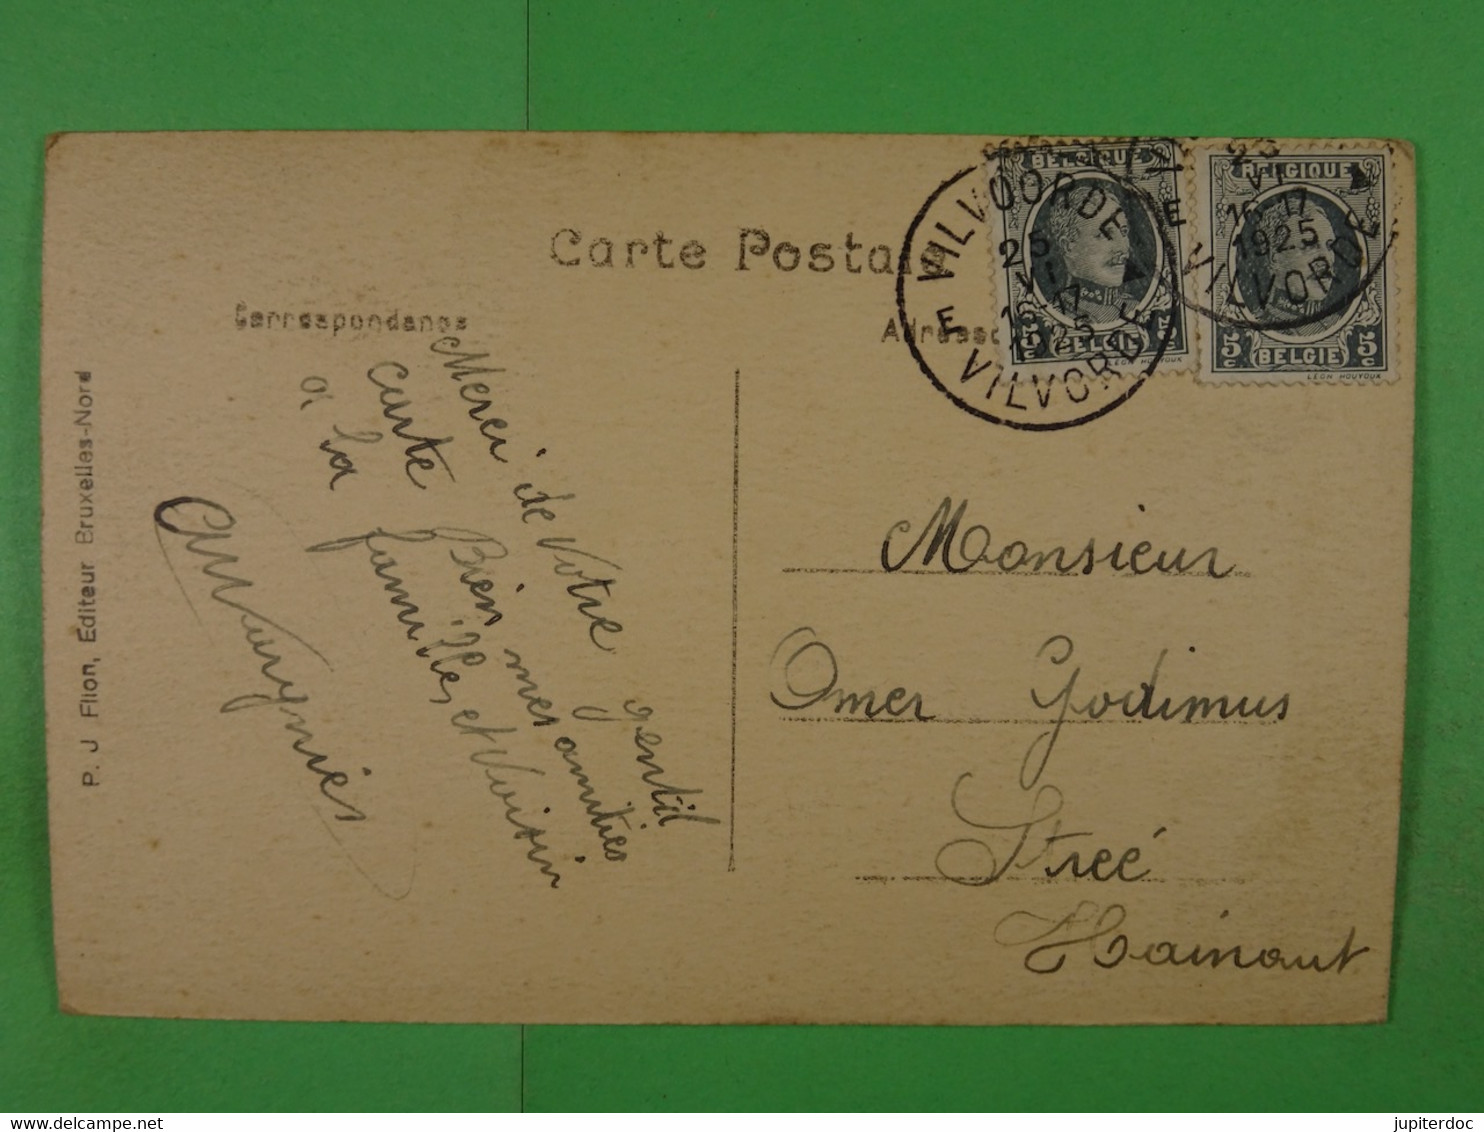 Carte Postale
Correspondance
Adresse
P. J Flion, Editeur Bruxelles-Nord
Merci de Votre gentil
carte Bien mes amitiés
a la famille, et Voisin
BELGIQUE
5c BELGIE 5c
LEON HOUYOUX
BELGIQUE
5c BELGIE 5c
LEON HOUYOUX
VILVOORDE
25
VI
16-17
1925
E E
VILVORDE
25
VI
16-17
1925
E E
VILVORDE
Monsieur
Omer Godimus
Strée
Hainaut
jupiterdoc